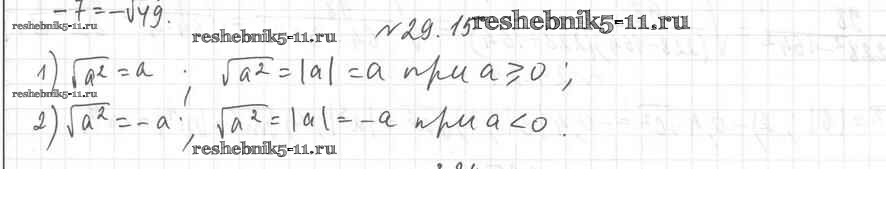 -7 = -√49.
reshebnik5-11.ru
reshebnik5-11.ru
№29.15
reshebnik5-11.ru
1) √a² = a ; √a² = |a| = a при a ≥ 0 ;
reshebnik5-11.ru
2) √a² = -a ; √a² = |a| = -a при a < 0 .
reshebnik5-11.ru